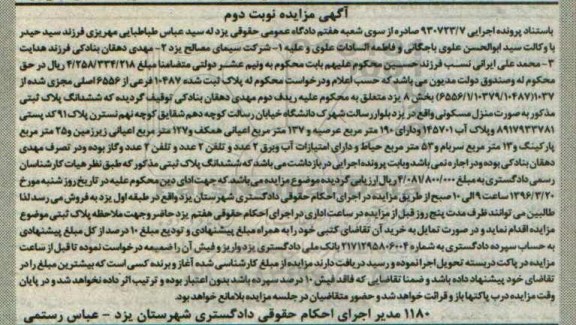 آگهی مزایده نوبت دوم
باستناد پرونده اجرایی ۹۳۰۷۲۳/۷ صادره از سوی شعبه هفتم دادگاه عمومی حقوقی یزد له سید عباس طباطبایی مهریزی فرزند سید حیدر
با وکالت سید ابوالحسن علوی باجگانی و فاطمه السادات علوی و علیه ۱- شرکت سیمای مصالح یزد ۲- مهدی دهقان بنادکی فرزند هدایت
۳- محمد علی ایرانی نسب فرزند حسین محکوم علیهم بابت محکوم به ونیم عشر دولتی متضامنا مبلغ ۴/۲۵۸/۳۳۴/۲۱۸ ریال در حق
محکوم له وصندوق دولت مدیون می باشد که حسب اعلام ودرخواست محکوم له پلاک ثبت شده ۱۰۴۸۷ فرعی از ۶۵۵۶ اصلی مجزی شده از
۱۰۳۷ (۶۵۵۶/۱/۱۰۳۷۹/۱۰۴۸۷) بخش ۸ یزد متعلق به محکوم علیه ردیف دوم مهدی دهقان بنادکی توقیف گردیده که ششدانگ پلاک ثبتی
مذکور به صورت منزل مسکونی واقع در یزد بلوار رسالت شهرک دانشگاه خیابان رسالت کوچه دهم شقایق کوچه نهم نسترن پلاک ۹۱ کد پستی
۸۹۱۷۹۳۳۷۸۱ وپلاک آب ۱۴۵۷۰۱ ودارای ۱۹۰ متر مربع عرصه و ۱۳۷ متر مربع اعیانی همکف و۱۲۷ متر مربع اعیانی زیرزمین و۲۵ متر مربع
پارکینگ و ۱۳ متر مربع سرپام و۵۳ متر مربع حیاط و دارای امتیازات آب وبرق ۲ عدد و تلفن ۲ عدد و تلفن ۲ عدد وگاز بوده ودر تصرف مهدی
دهقان بنادکی بوده ودر اجاره نمی باشد وبابت پرونده اجرایی در بازداشت می باشد که ششدانگ پلاک ثبتی مذکور که طبق نظر هیات کارشناسان
رسمی دادگستری به مبلغ ۴/۰۸۱/۸۰۰/۰۰۰ ریال ارزیابی گردیده موضوع مزایده می باشد که جهت ادای دین محکوم علیه در تاریخ روز شنبه مورخ
۱۳۹۶/۳/۲۰ ساعت ۹ الی ۱۰ صبح از طریق مزایده در اجرای احکام حقوقی دادگستری شهرستان یزد واقع در طبقه اول یزد به فروش می رسد لذا
طالبین می توانند ظرف مدت پنج روز قبل از مزایده در ساعت اداری در اجرای احکام حقوقی هفتم یزد حاضر وجهت ملاحظه پلاک ثبتی موضوع
مزایده اقدام نماید و در صورت تمایل به خرید آن تقاضای کتبی خود را به همراه مبلغ پیشنهادی و تودیع مبلغ ۱۰ درصد از کل مبلغ پیشنهادی
به حساب سپرده دادگستری به شماره ۲۱۷۱۲۹۵۸۰۶۰۰۴ بانک ملی دادگستری یزد واریز و فیش آن را ضمیمه درخواست نموده تا قبل از ساعت
مزایده در پاکت دربسته تحویل اجرا نموده و رسید دریافت دارند مزایده از مبلغ کارشناسی شده آغاز و برنده کسی است که بیشترین مبلغ را در
تقاضای خود پیشنهاد داده باشد و ضمنا تقاضایی که فاقد فیش ۱۰ درصد سپرده باشد بدون اعتبار بوده و ترتیب اثر داده نخواهد شد و در پایان
وقت مزایده درب پاکتها باز و قرائت خواهد شد و حضور متقاضیان در جلسه مزایده بلامانع خواهد بود.
۱۱۸۰ مدیر اجرای احکام حقوقی دادگستری شهرستان یزد - عباس رستمی